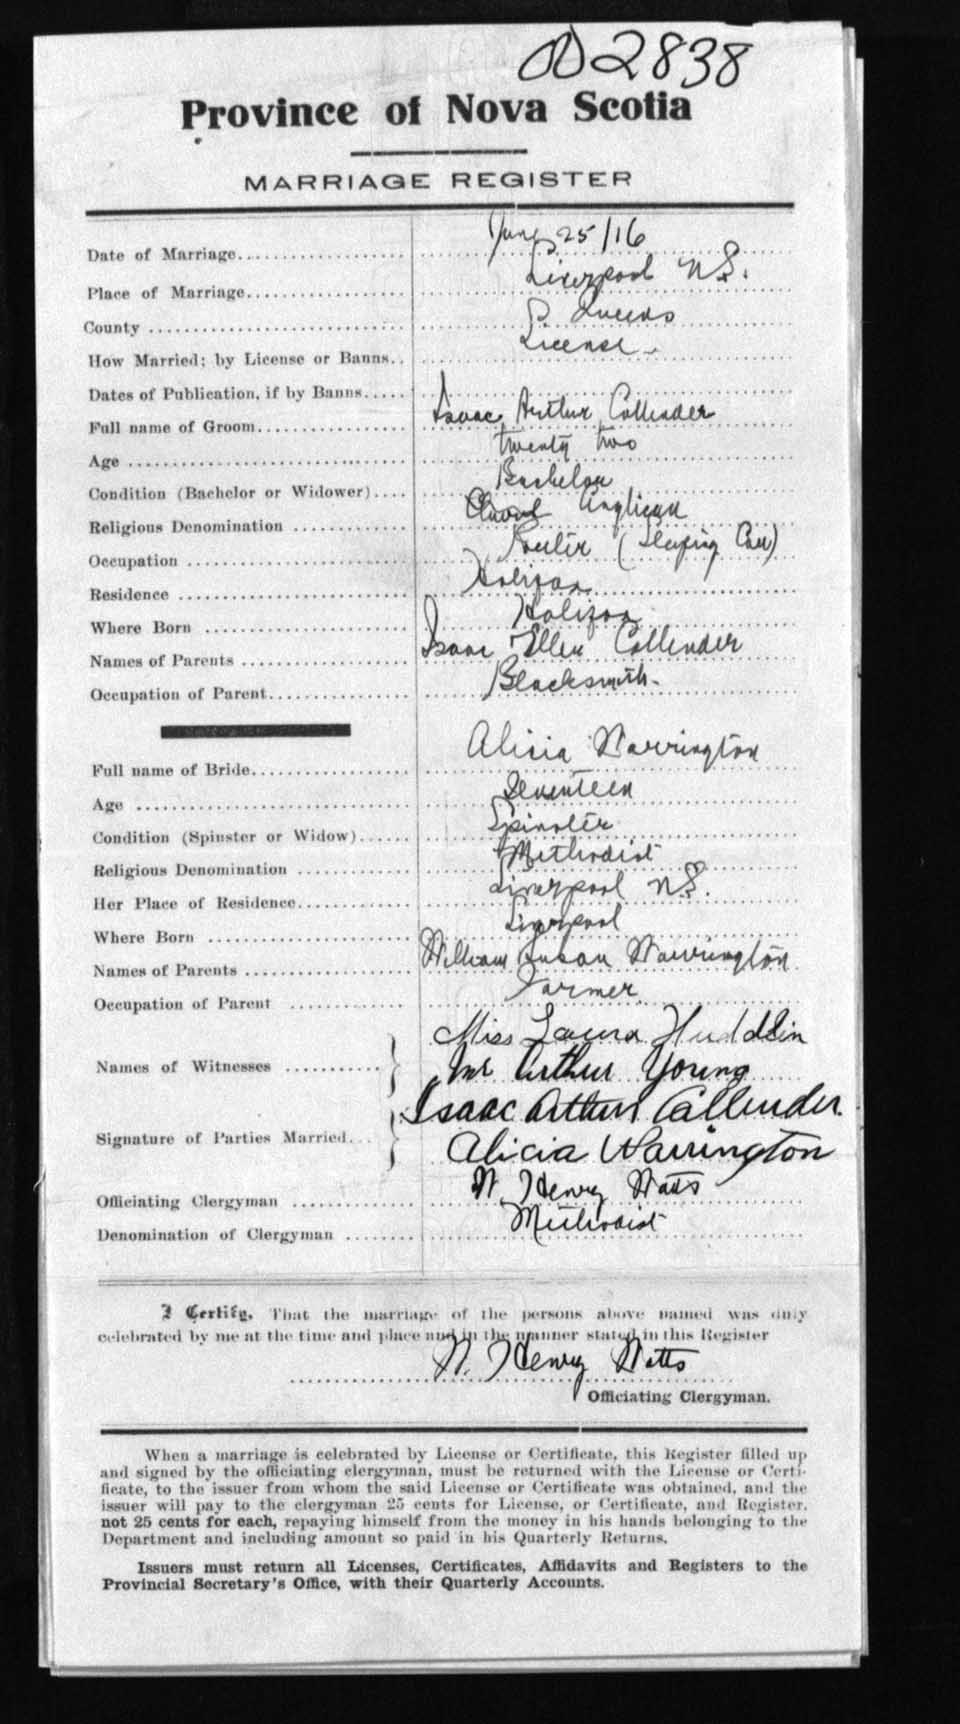 2838
Province of Nova Scotia
MARRIAGE REGISTER
Date of Marriage June 25/16
Place of Marriage Liverpool N.S.
County Queens
How Married; by License or Banns License
Dates of Publication, if by Banns
Full name of Groom Isaac Arthur Callender
Age twenty two
Condition (Bachelor or Widower) Bachelor
Religious Denomination Anglican
Occupation Porter (Sleeping Car)
Residence Halifax
Where Born Halifax
Names of Parents Isaac Ellen Callender
Occupation of Parent Blacksmith
Full name of Bride Alicia Warrington
Age Seventeen
Condition (Spinster or Widow) Spinster
Religious Denomination Methodist
Her Place of Residence Liverpool N.S.
Where Born Liverpool
Names of Parents William Susan Warrington
Occupation of Parent Farmer
Names of Witnesses Miss Laura
Mr Arthur Young
Signature of Parties Married Isaac Arthur Callender.
Alicia Warrington
Officiating Clergyman W. Henry Watts
Denomination of Clergyman Methodist
I Certify, That the marriage of the persons above named was duly
celebrated by me at the time and place and in the manner stated in this Register
W. Henry Watts
Officiating Clergyman.
When a marriage is celebrated by License or Certificate, this Register filled up
and signed by the officiating clergyman, must be returned with the License or Certi-
ficate, to the issuer from whom the said License or Certificate was obtained, and the
issuer will pay to the clergyman 25 cents for License, or Certificate, and Register,
not 25 cents for each, repaying himself from the money in his hands belonging to the
Department and including amount so paid in his Quarterly Returns.
Issuers must return all Licenses, Certificates, Affidavits and Registers to the
Provincial Secretary's Office, with their Quarterly Accounts.